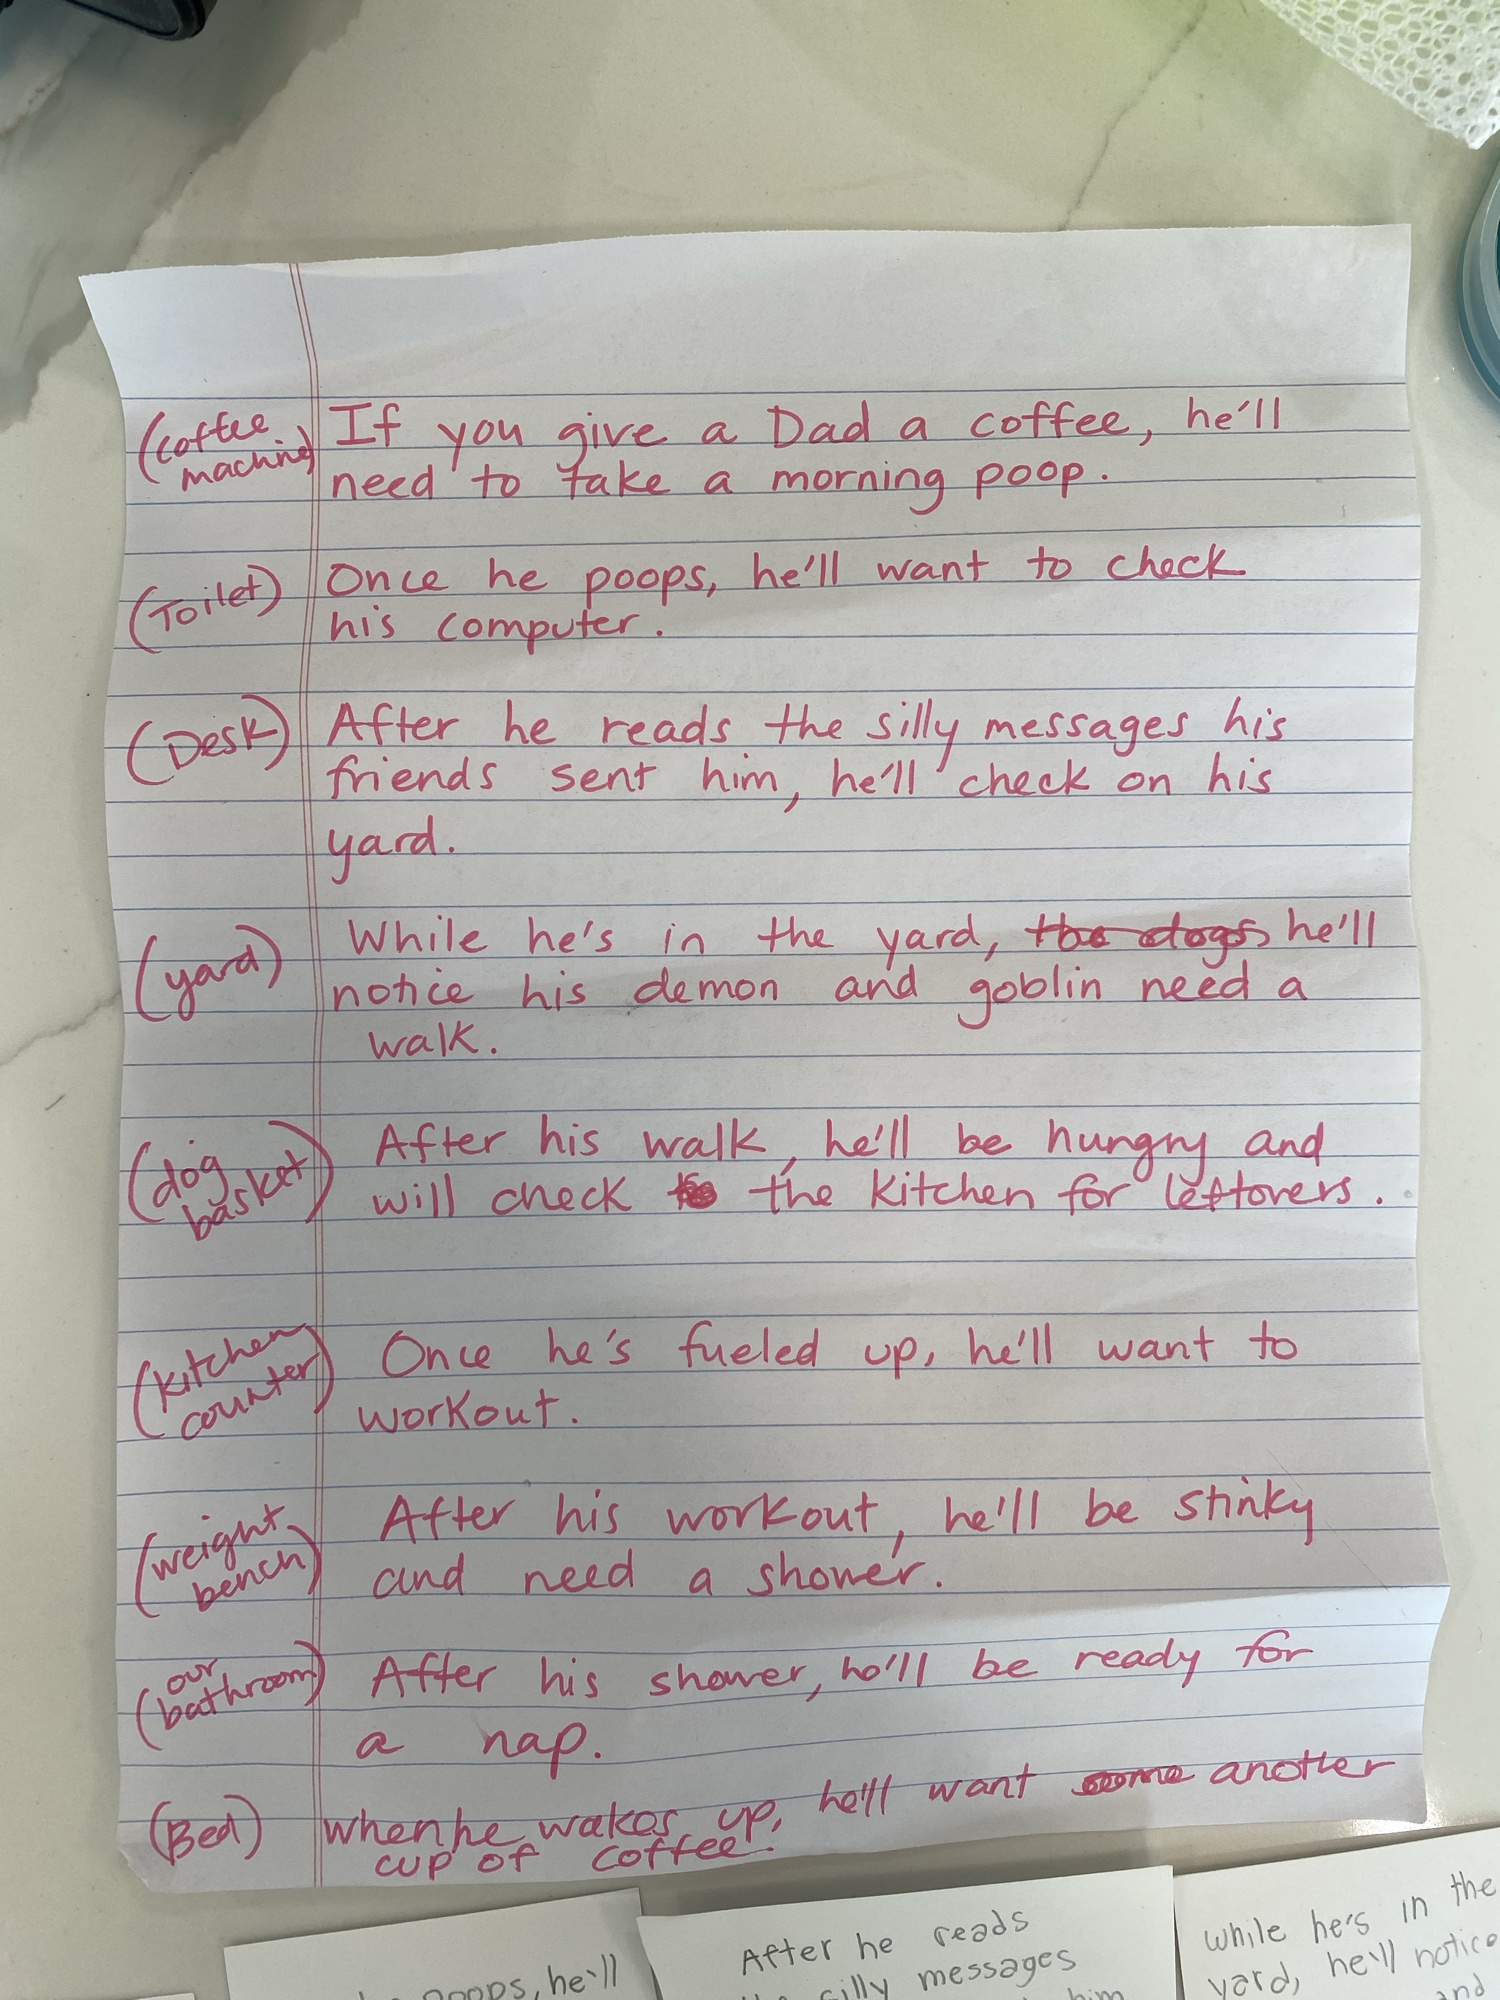 (coffee machine) If you give a Dad a coffee, he'll
need to take a morning poop.
(Toilet) Once he poops, he'll want to check
his computer.
(Desk) After he reads the silly messages his
friends sent him, he'll check on his
yard.
(yard) While he's in the yard, the dogs, he'll
notice his demon and goblin need a
walk.
(dog basket) After his walk, he'll be hungry and
will check to the kitchen for leftovers.
(kitchen counter) Once he's fueled up, he'll want to
workout.
(weight bench) After his workout, he'll be stinky
and need a shower.
(our bathroom) After his shower, he'll be ready for
a nap.
(Bed) when he wakes up, he'll want some another
cup of coffee.
poops, he'll
After he reads
silly messages
him
While he's in the
yard, he'll notice
and